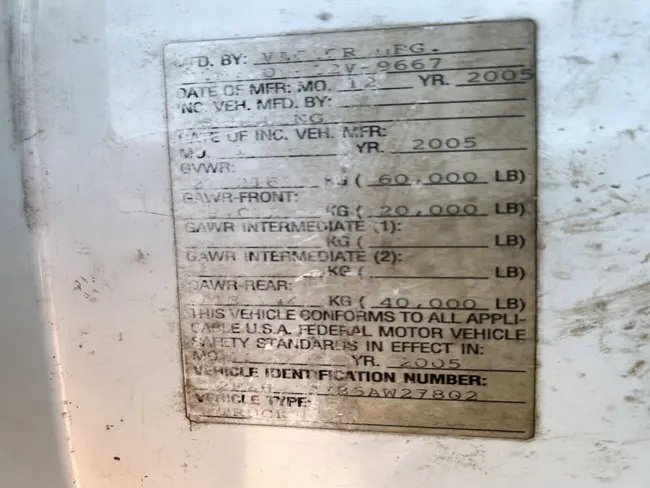 MFD. BY: MFG.
V-9667
DATE OF MFR: MO. 12 YR. 2005
INC. VEH. MFD. BY:
DATE OF INC. VEH. MFR:
MO. YR. 2005
GVWR:
KG ( 60,000 LB)
GAWR-FRONT:
KG ( 20,000 LB)
GAWR INTERMEDIATE (1):
KG ( LB)
GAWR INTERMEDIATE (2):
KG ( LB)
GAWR-REAR:
KG ( 40,000 LB)
THIS VEHICLE CONFORMS TO ALL APPLI-
CABLE U.S.A. FEDERAL MOTOR VEHICLE
SAFETY STANDARDS IN EFFECT IN:
MO. YR. 2005
VEHICLE IDENTIFICATION NUMBER:
VEHICLE TYPE:
TRUCK